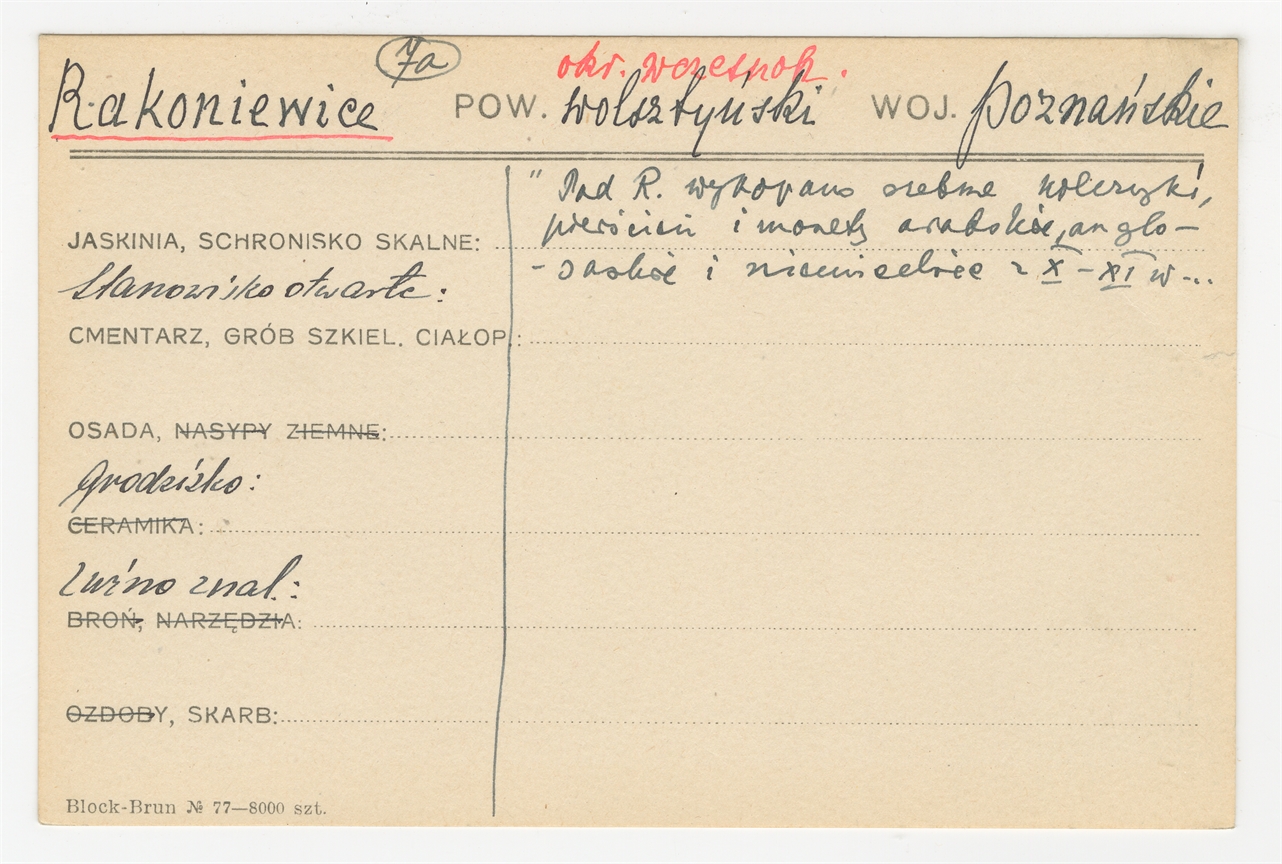 7a
okr. wczesnok.
Rakoniewice POW. wolsztyński WOJ. poznańskie
" Pod R. wykopano srebrne kolczyki,
pierścień i monety arabskie, anglo-
JASKINIA, SCHRONISKO SKALNE:
-saskie i niemieckie z X-XI w...
Stanowisko otwarte:
CMENTARZ, GRÓB SZKIEL. CIAŁOP.:
OSADA, NASYPY ZIEMNE:
Grodzisko:
CERAMIKA:
Luźno znal.:
BROŃ, NARZĘDZIA:
OZDOBY, SKARB:
Block-Brun № 77—8000 szt.